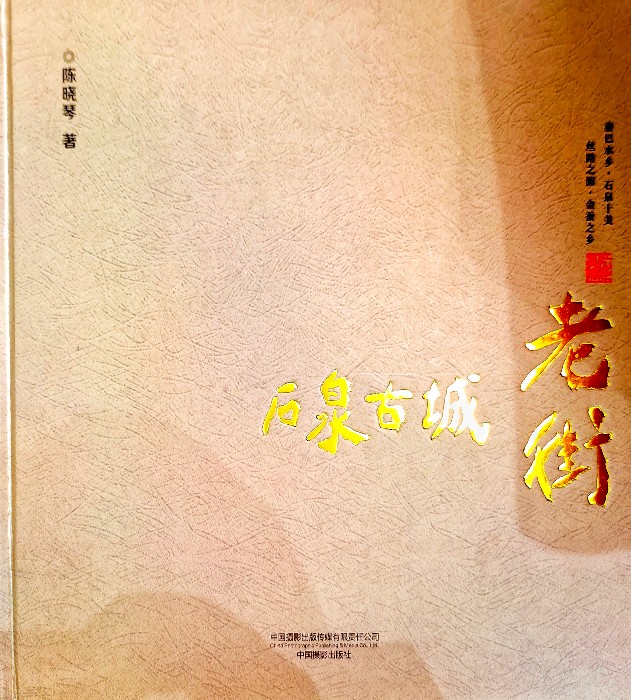 陈晓琴 著
秦巴水乡·石泉十美
丝路之源·金蚕之乡
老街
石泉古城
中国摄影出版传媒有限责任公司
China Photographic Publishing & Media Co., Ltd.
中国摄影出版社